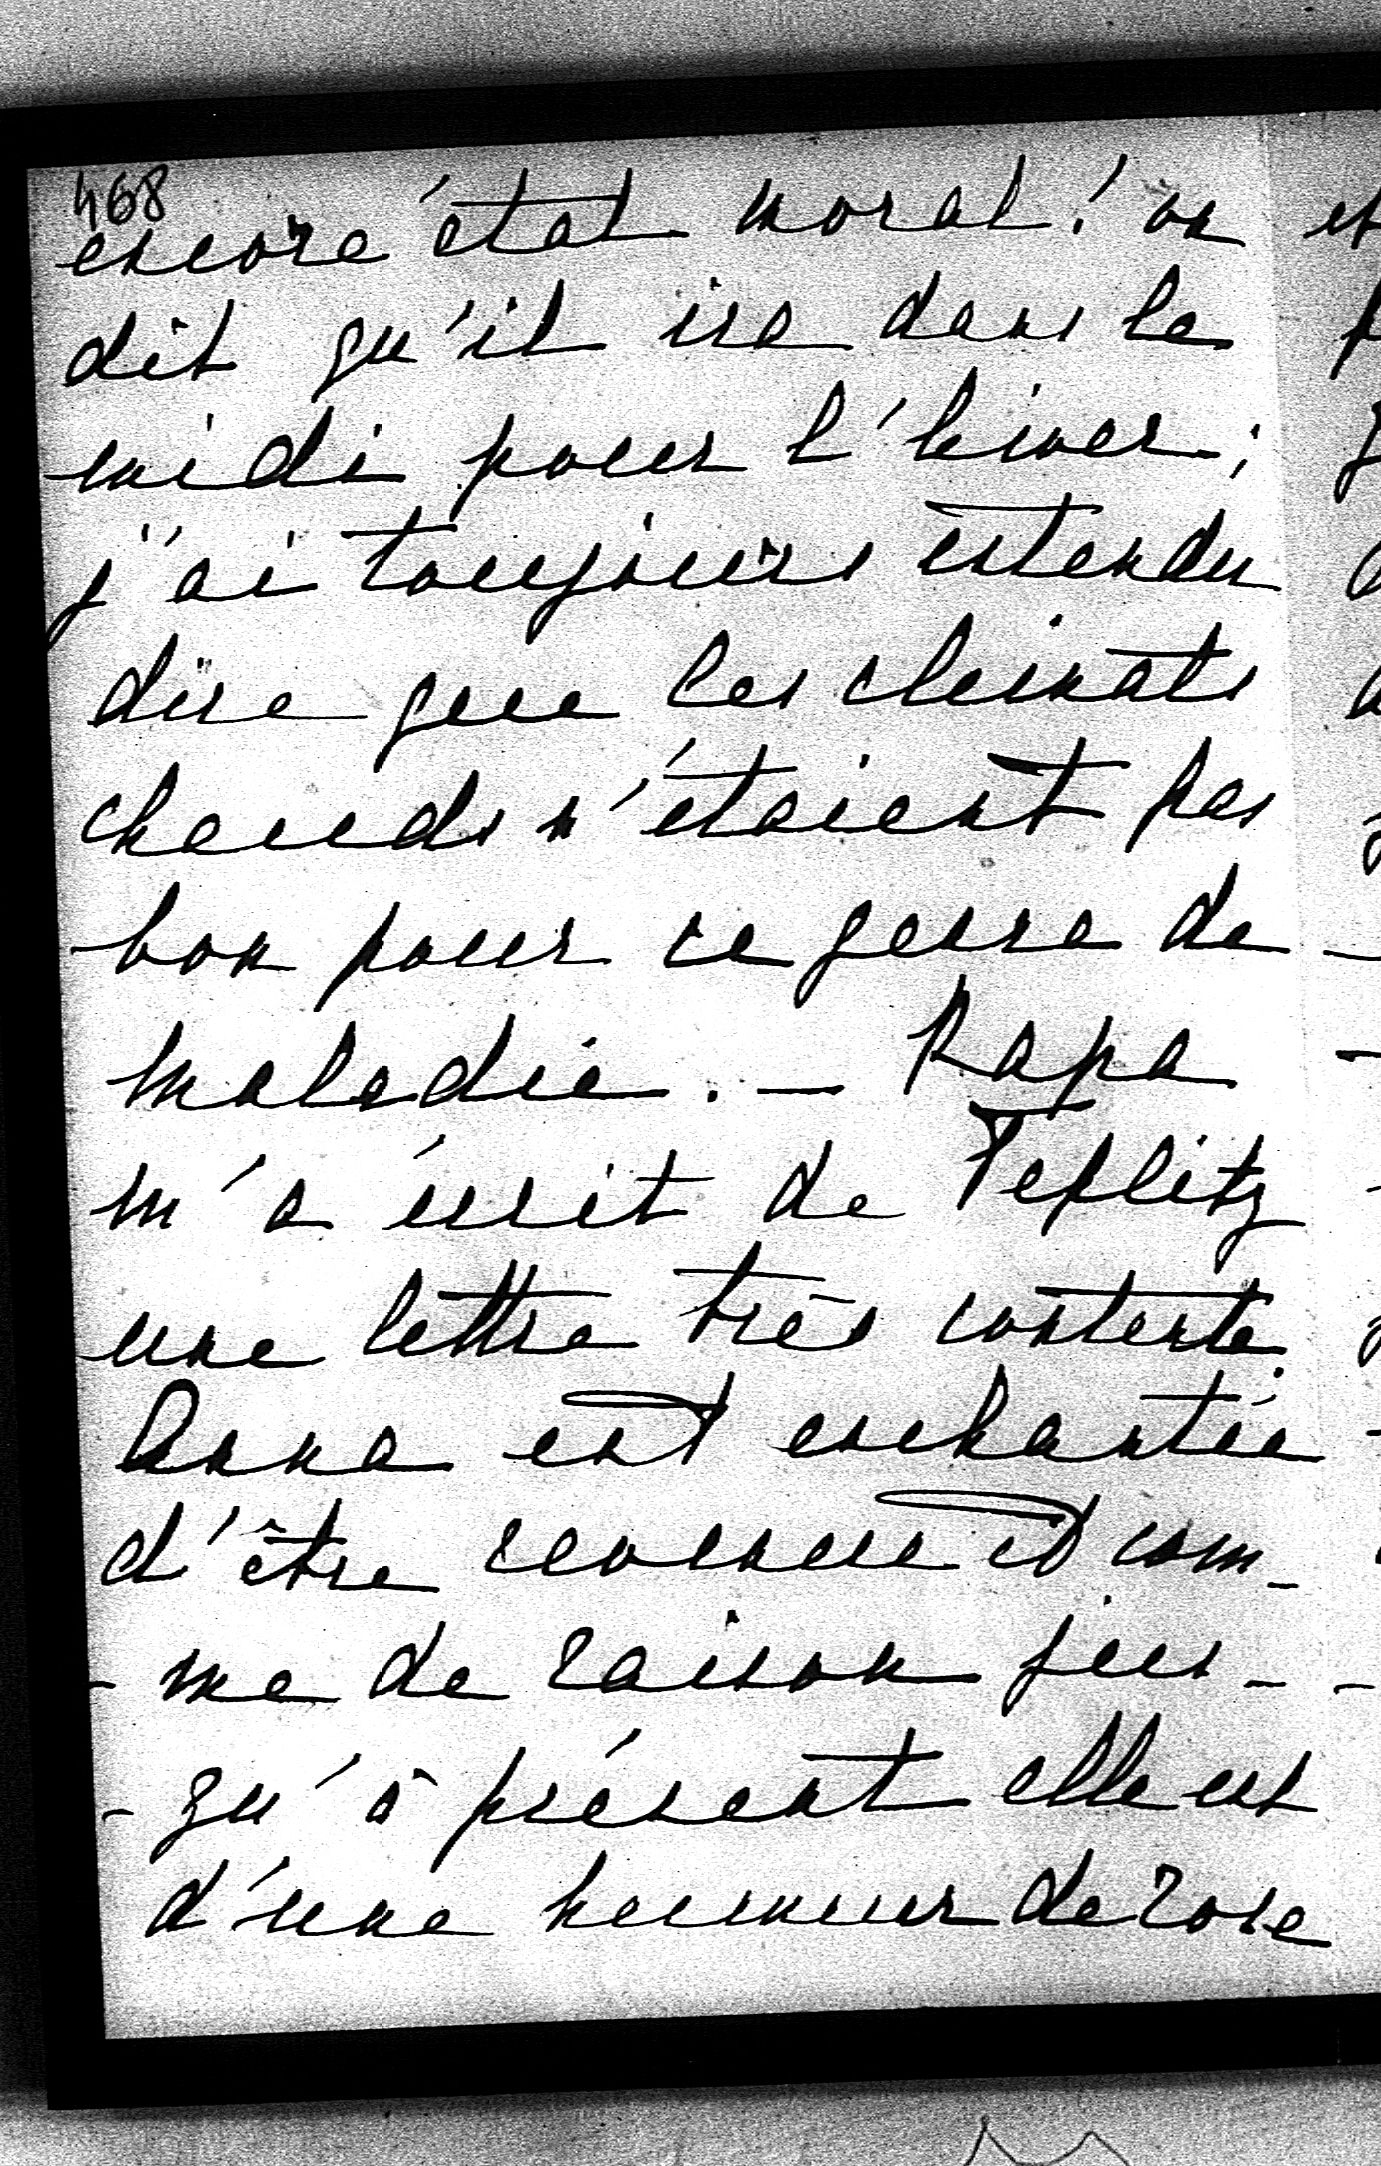 468
encore état moral! on
dit qu'il ira dans le
midi pour l'hiver;
j'ai toujours entendu
dire que les climats
chauds n'étaient pas
bon pour ce genre de
maladie. — Papa
m'a écrit de Teplitz
une lettre très contente.
Anna est enchantée
d'être revenue et com-
-me de raison jus-
-qu'à présent elle est
d'une humeur de rose